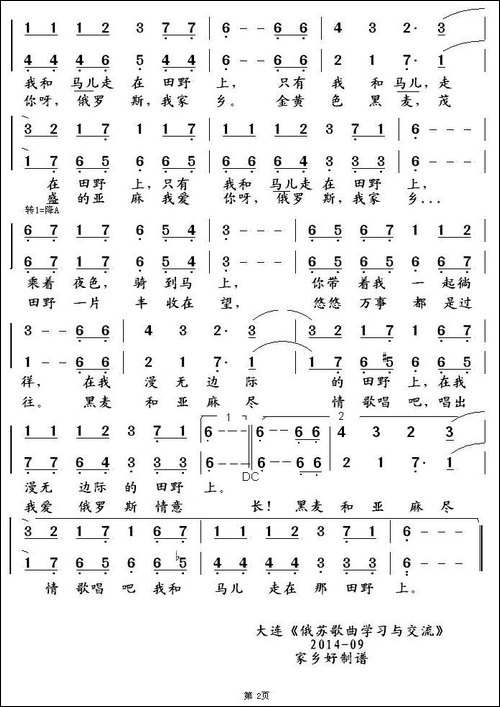 1 1 1 2 3 7 7 6 - - 6 6 4 3 2· 3
4 4 4 6 5 4 4 6 - - 6 6 4 3 2· 1
我和 马儿走 在 田野 上， 只有 我 和 马儿，走
你呀，俄罗 斯，我家 乡。 金黄 色 黑 麦，茂
3 2 1 7 6 1 7 1 1 1 2 3 7 1 6 - - -
1 7 6 5 6 6 5 6 6 6 4 3 3 3 6 - - -
在 田野 上，只有 我和 马儿走 在 田野 上，
盛 的亚 麻 我爱 你呀，俄罗 斯，我家 乡...
转1=降A
6 7 1 7 6 5 4 3 - - - 6 7 6 7 1 1 2
6 7 1 7 6 5 4 3 - - - 6 7 6 7 6 6 5
乘着 夜色，骑 到马 上， 你带 着我 一 起徜
田野 一片 丰 收在 望， 悠悠 万事 都 是过
3 - - 6 6 4 3 2· 3 3 2 1 7 1 6 7
1 - - 6 6 2 1 7· 1 1 7 6 #5 6 6 5
徉， 在我 漫 无 边 际 的 田野 上，在我
往。 黑麦 和 亚 麻 尽 情 歌唱 吧，唱出
1 1 1 1 2 3 7 1 1 6 - - 6 - - 6 6 2 4 3 2 3
7 7 7 6 4 3 3 3 6 - - 6 - - 6 6 2 1 7· 1
DC
漫无 边际 的 田野 上。
我爱 俄罗 斯 情意 长！ 黑麦 和 亚 麻 尽
3 2 1 7 1 6 7 1 1 1 1 2 3 7 1 6 - - -
1 7 6 5 6 6 ♭5 4 4 4 4 4 3 3 3 6 - - -
情 歌唱 吧 我和 马儿 走在 那 田野 上。
大连《俄苏歌曲学习与交流》
2014-09
家乡好制谱
第 2页